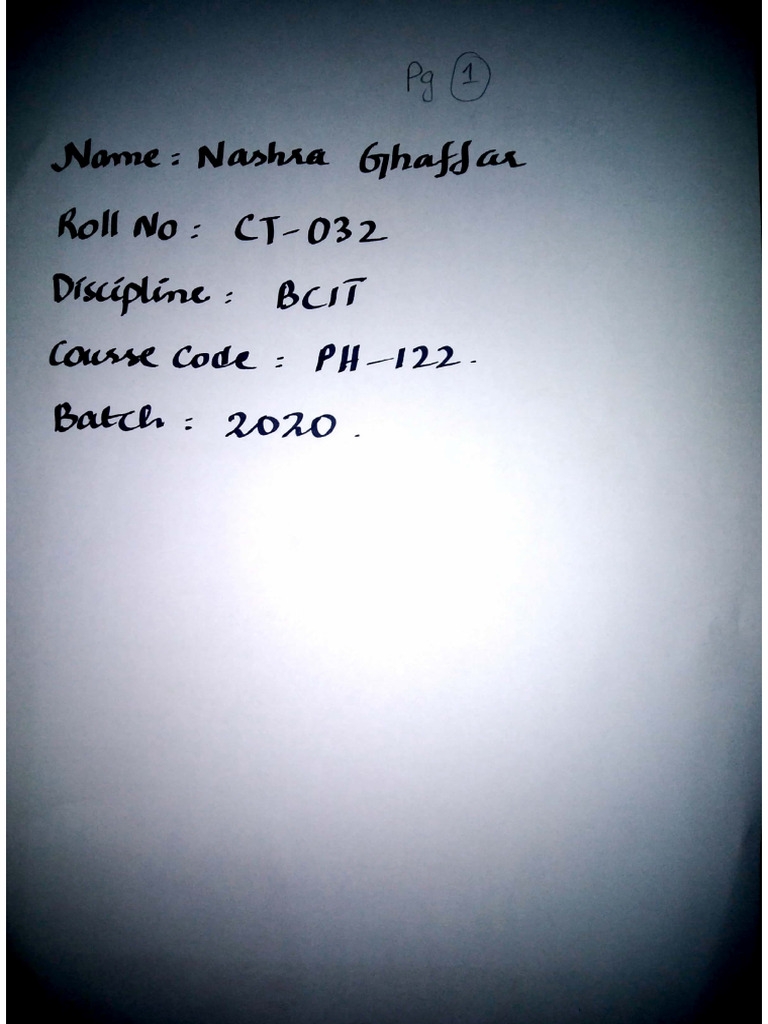 Pg 1
Name: Nashra Ghaffar
Roll No: CT-032
Discipline: BCIT
Course Code: PH-122.
Batch: 2020.